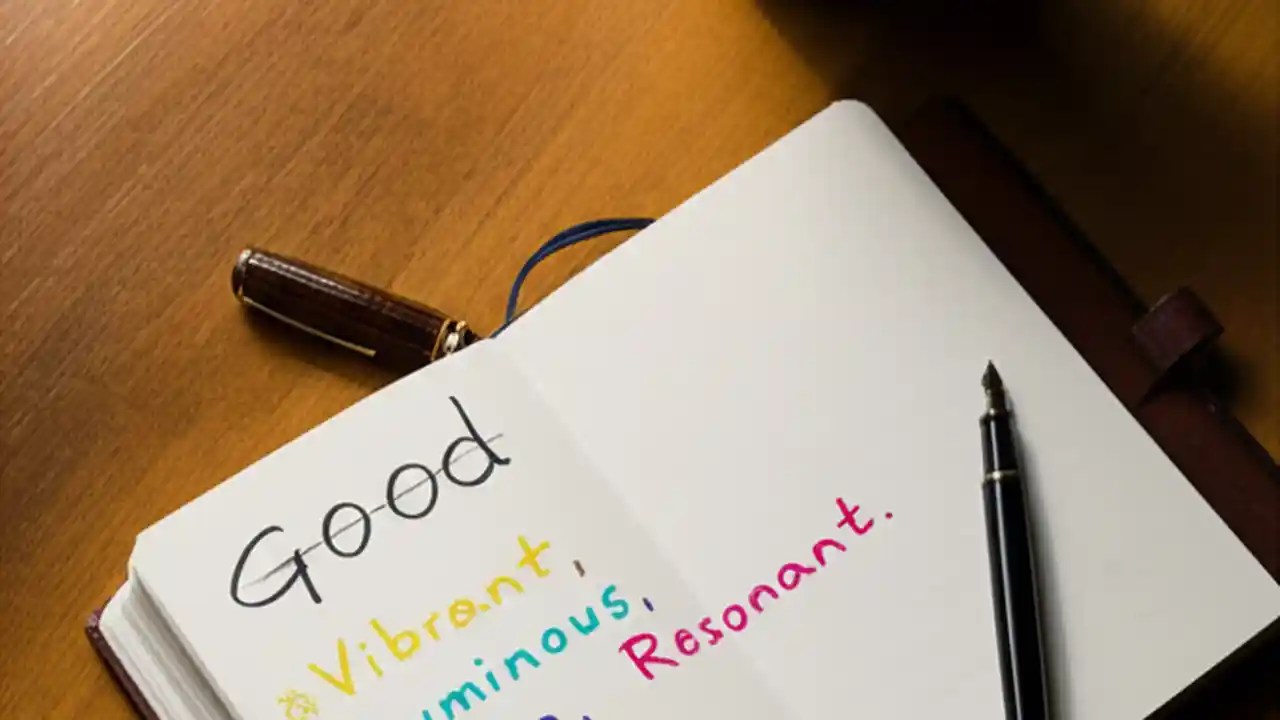 Good
Vibrant,
uminous,
Resonant.